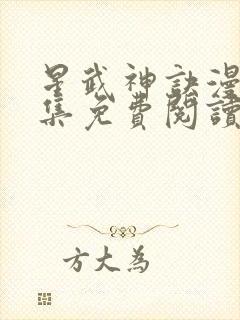 星武神訣漫
集免費閱讀
方大為